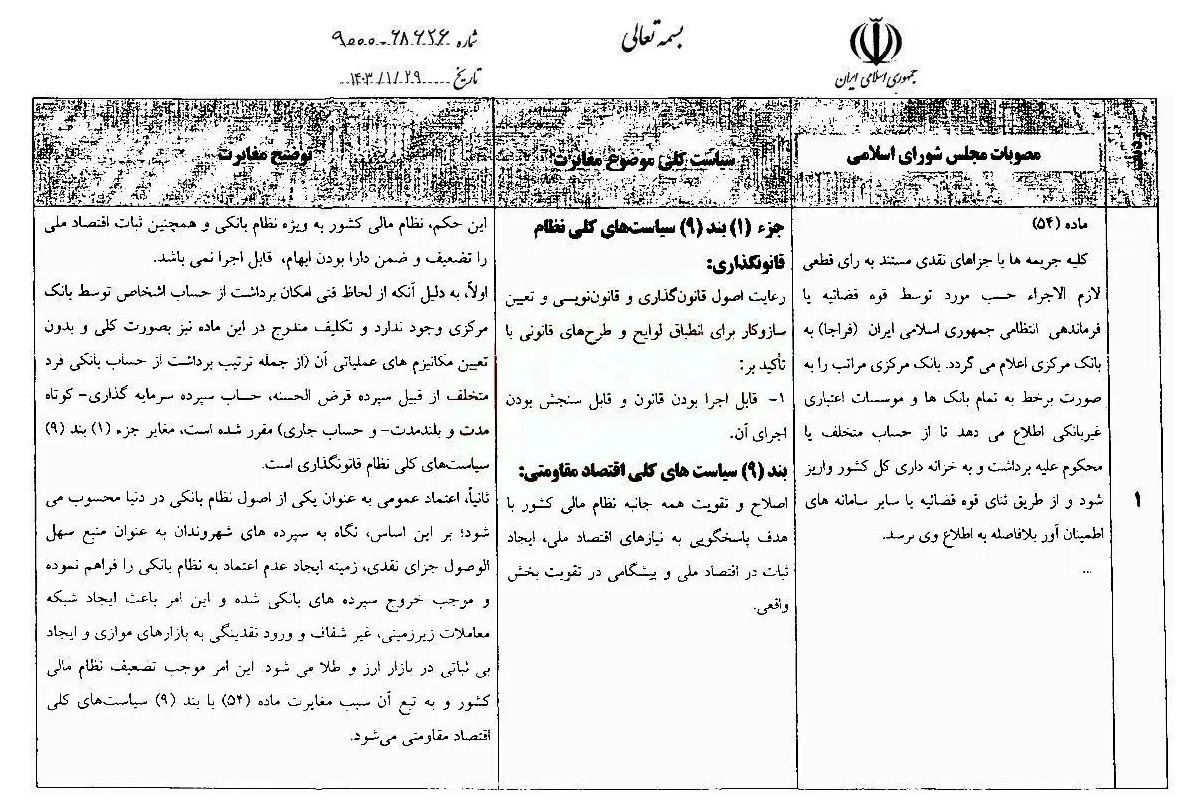 جمهوری اسلامی ایران
بسمه تعالی
شماره ۹۰۰۰۰۶۸۶۲۶
تاریخ ۱۴۰۳/۱/۲۹
ردیف
مصوبات مجلس شورای اسلامی
سیاست کلی موضوع مغایرت
توضیح مغایرت
۱
ماده (۵۴)
کلیه جریمه ها یا جزاهای نقدی مستند به رای قطعی
لازم الاجراء حسب مورد توسط قوه قضائیه یا
فرماندهی انتظامی جمهوری اسلامی ایران (فراجا) به
بانک مرکزی اعلام می گردد. بانک مرکزی مراتب را به
صورت برخط به تمام بانک ها و موسسات اعتباری
غیربانکی اطلاع می دهد تا از حساب متخلف یا
محکوم علیه برداشت و به خزانه داری کل کشور واریز
شود و از طریق ثنای قوه قضائیه یا سایر سامانه های
اطمینان آور بلافاصله به اطلاع وی برسد.
...
جزء (۱) بند (۹) سیاست‌های کلی نظام
قانونگذاری:
رعایت اصول قانون‌گذاری و قانون‌نویسی و تعیین
سازوکار برای انطباق لوایح و طرح‌های قانونی با
تأکید بر:
۱- قابل اجرا بودن قانون و قابل سنجش بودن
اجرای آن.
بند (۹) سیاست های کلی اقتصاد مقاومتی:
اصلاح و تقویت همه جانبه نظام مالی کشور با
هدف پاسخگویی به نیازهای اقتصاد ملی، ایجاد
ثبات در اقتصاد ملی و پیشگامی در تقویت بخش
واقعی.
این حکم، نظام مالی کشور به ویژه نظام بانکی و همچنین ثبات اقتصاد ملی
را تضعیف و ضمن دارا بودن ابهام، قابل اجرا نمی باشد.
اولاً، به دلیل آنکه از لحاظ فنی امکان برداشت از حساب اشخاص توسط بانک
مرکزی وجود ندارد و تکلیف مندرج در این ماده نیز بصورت کلی و بدون
تعیین مکانیزم های عملیاتی آن (از جمله ترتیب برداشت از حساب بانکی فرد
متخلف از قبیل سپرده قرض الحسنه، حساب سپرده سرمایه گذاری- کوتاه
مدت و بلندمدت- و حساب جاری) مقرر شده است، مغایر جزء (۱) بند (۹)
سیاست‌های کلی نظام قانونگذاری است.
ثانیاً، اعتماد عمومی به عنوان یکی از اصول نظام بانکی در دنیا محسوب می
شود؛ بر این اساس، نگاه به سپرده های شهروندان به عنوان منبع سهل
الوصول جزای نقدی، زمینه ایجاد عدم اعتماد به نظام بانکی را فراهم نموده
و موجب خروج سپرده های بانکی شده و این امر باعث ایجاد شبکه
معاملات زیرزمینی، غیر شفاف و ورود نقدینگی به بازارهای موازی و ایجاد
بی ثباتی در بازار ارز و طلا می شود. این امر موجب تضعیف نظام مالی
کشور و به تبع آن سبب مغایرت ماده (۵۴) با بند (۹) سیاست‌های کلی
اقتصاد مقاومتی می‌شود.